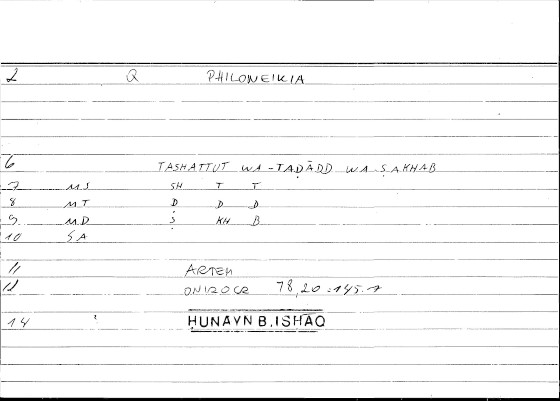 2 Q PHILONEIKIA
6 TASHATTUT WA-TAḌĀDD WA-ṢAKHAB
7 MS SH T T
8 MT Ḍ D D
9 MD Ṣ KH B
10 SA
11 ARTEM
12 ONIROCR 78,20 : 145.7
14 HUNAYN B. ISHAQ